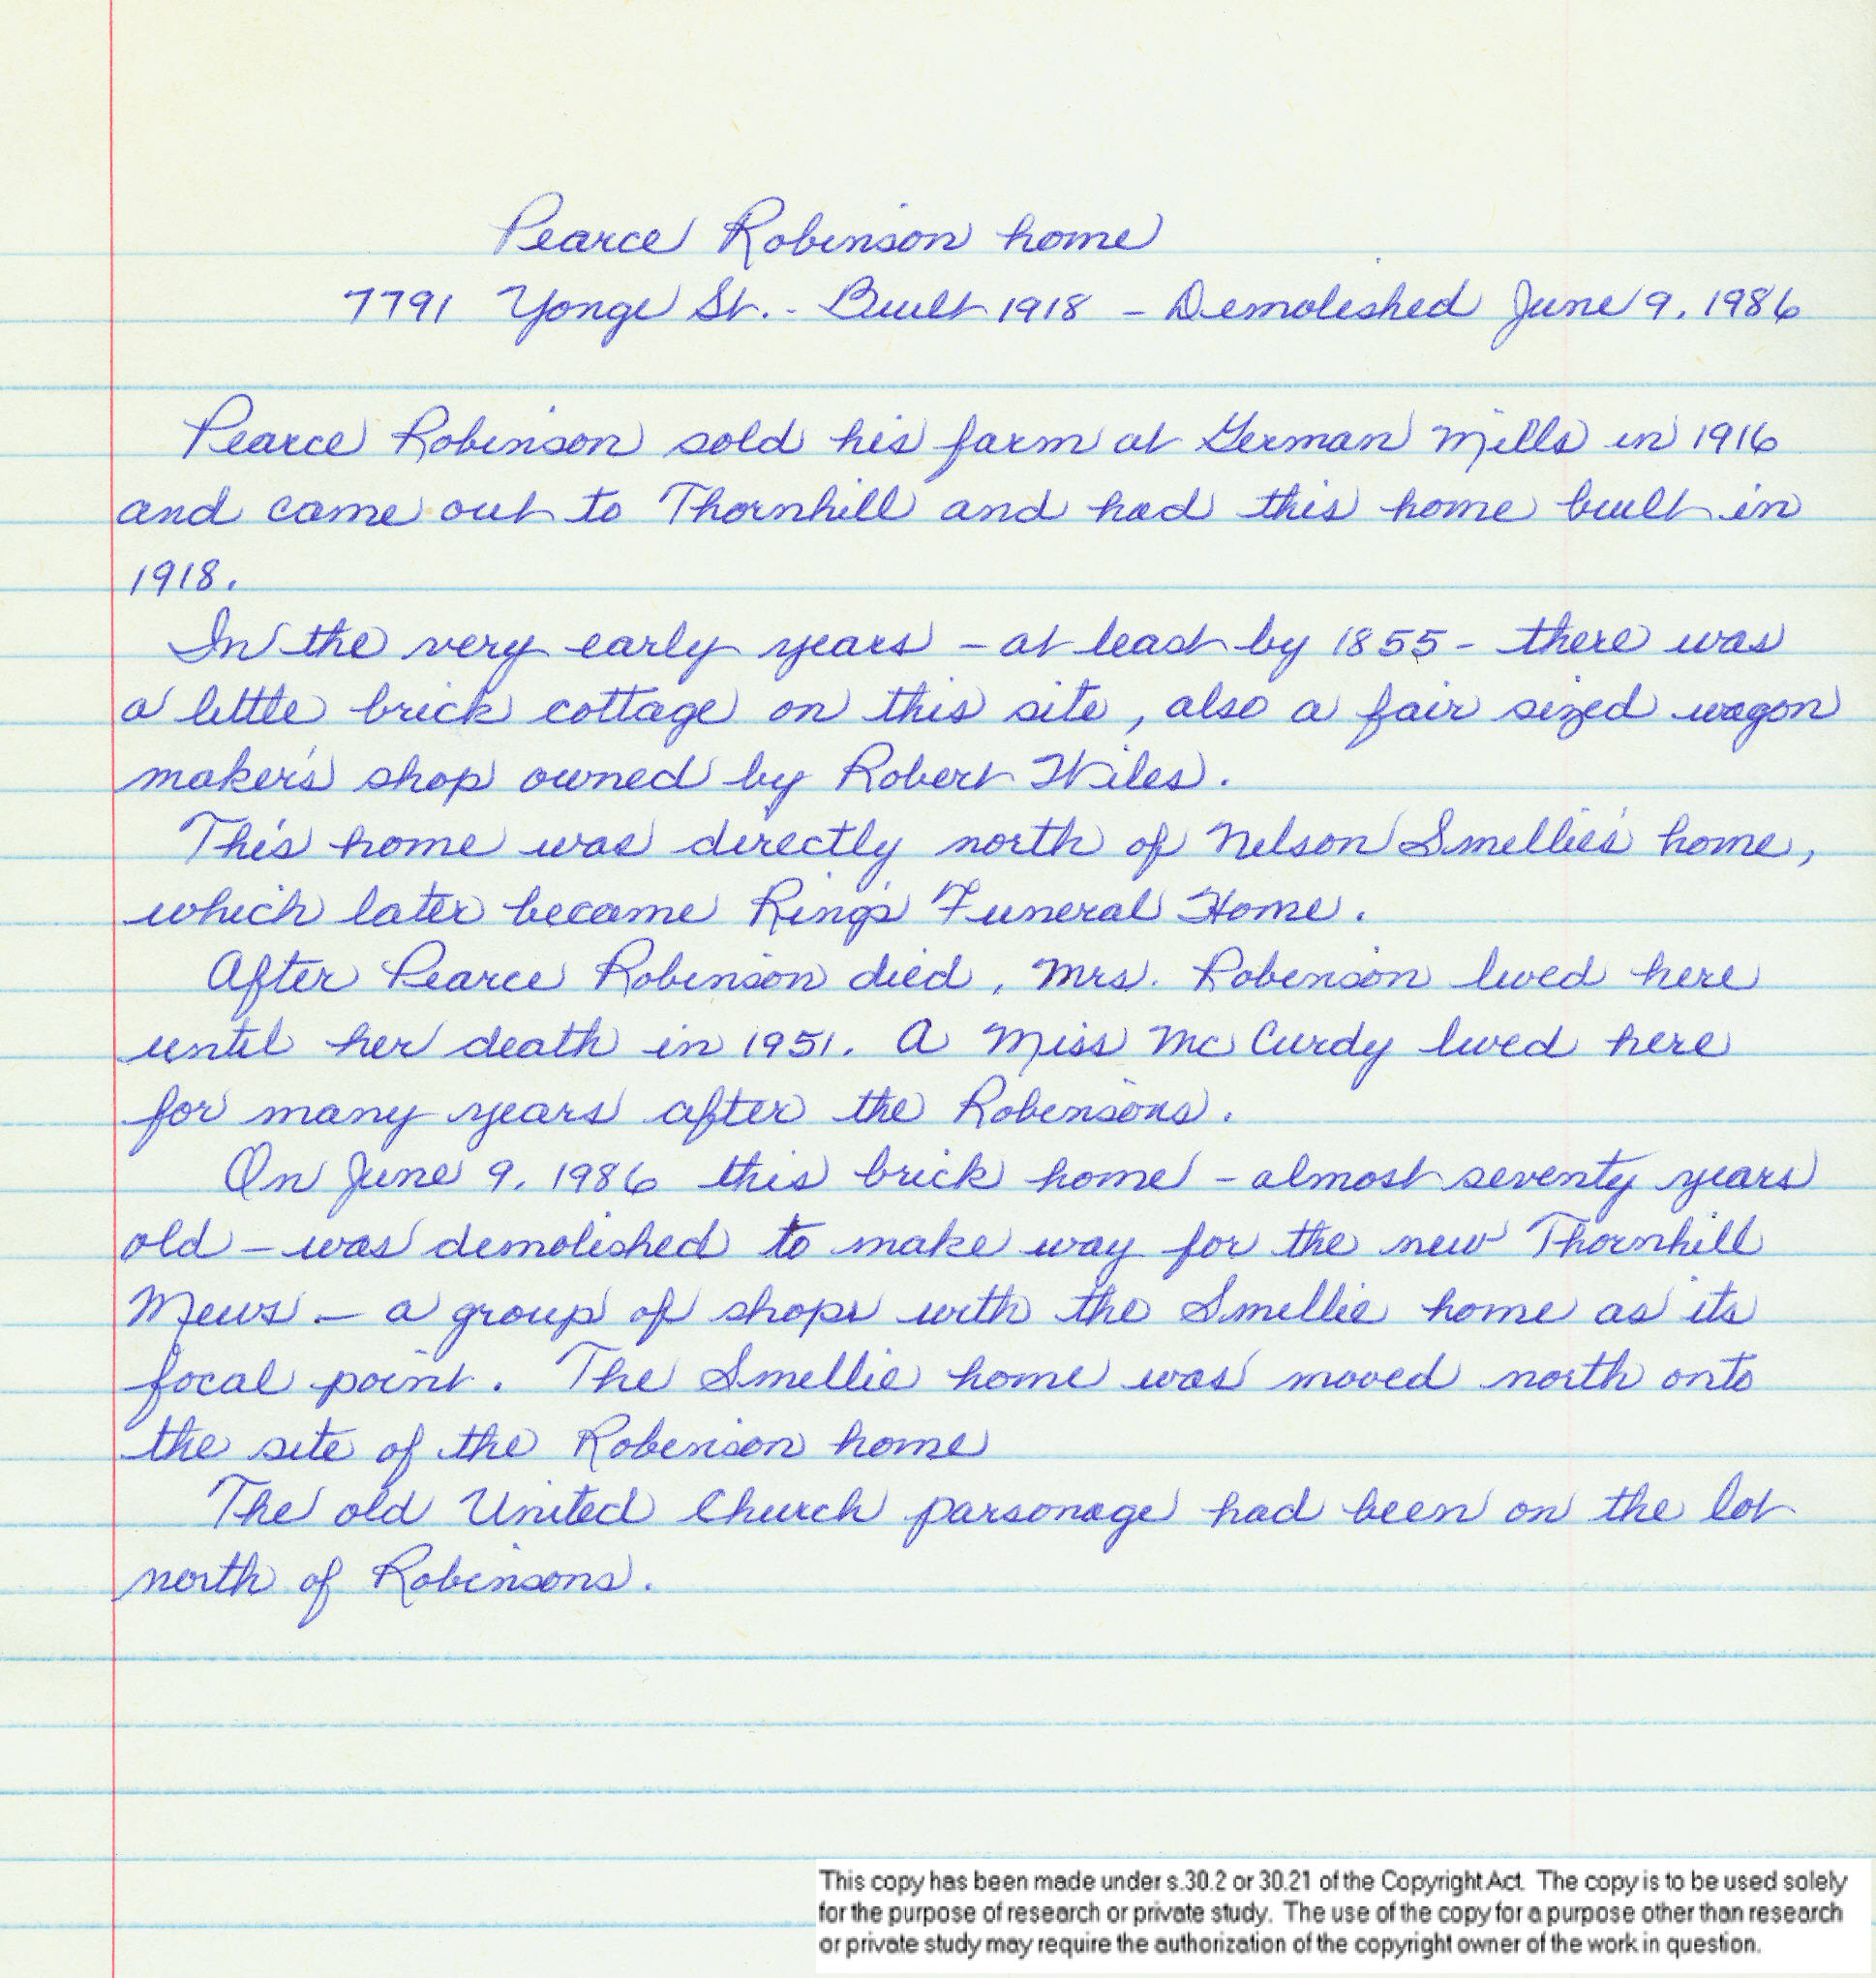 Pearce Robinson home
7791 Yonge St. - Built 1918 - Demolished June 9, 1986
Pearce Robinson sold his farm at German Mills in 1916
and came out to Thornhill and had this home built in
1918.
In the very early years - at least by 1855 - there was
a little brick cottage on this site, also a fair sized wagon
maker's shop owned by Robert Wiles.
This home was directly north of Nelson Smellie's home,
which later became Ring's Funeral Home.
After Pearce Robinson died, Mrs. Robinson lived here
until her death in 1951. A Miss McCurdy lived here
for many years after the Robinsons.
On June 9, 1986 this brick home - almost seventy years
old - was demolished to make way for the new Thornhill
Mews - a group of shops with the Smellie home as its
focal point. The Smellie home was moved north onto
the site of the Robinson home
The old United Church parsonage had been on the lot
north of Robinsons.
This copy has been made under s.30.2 or 30.21 of the Copyright Act. The copy is to be used solely
for the purpose of research or private study. The use of the copy for a purpose other than research
or private study may require the authorization of the copyright owner of the work in question.